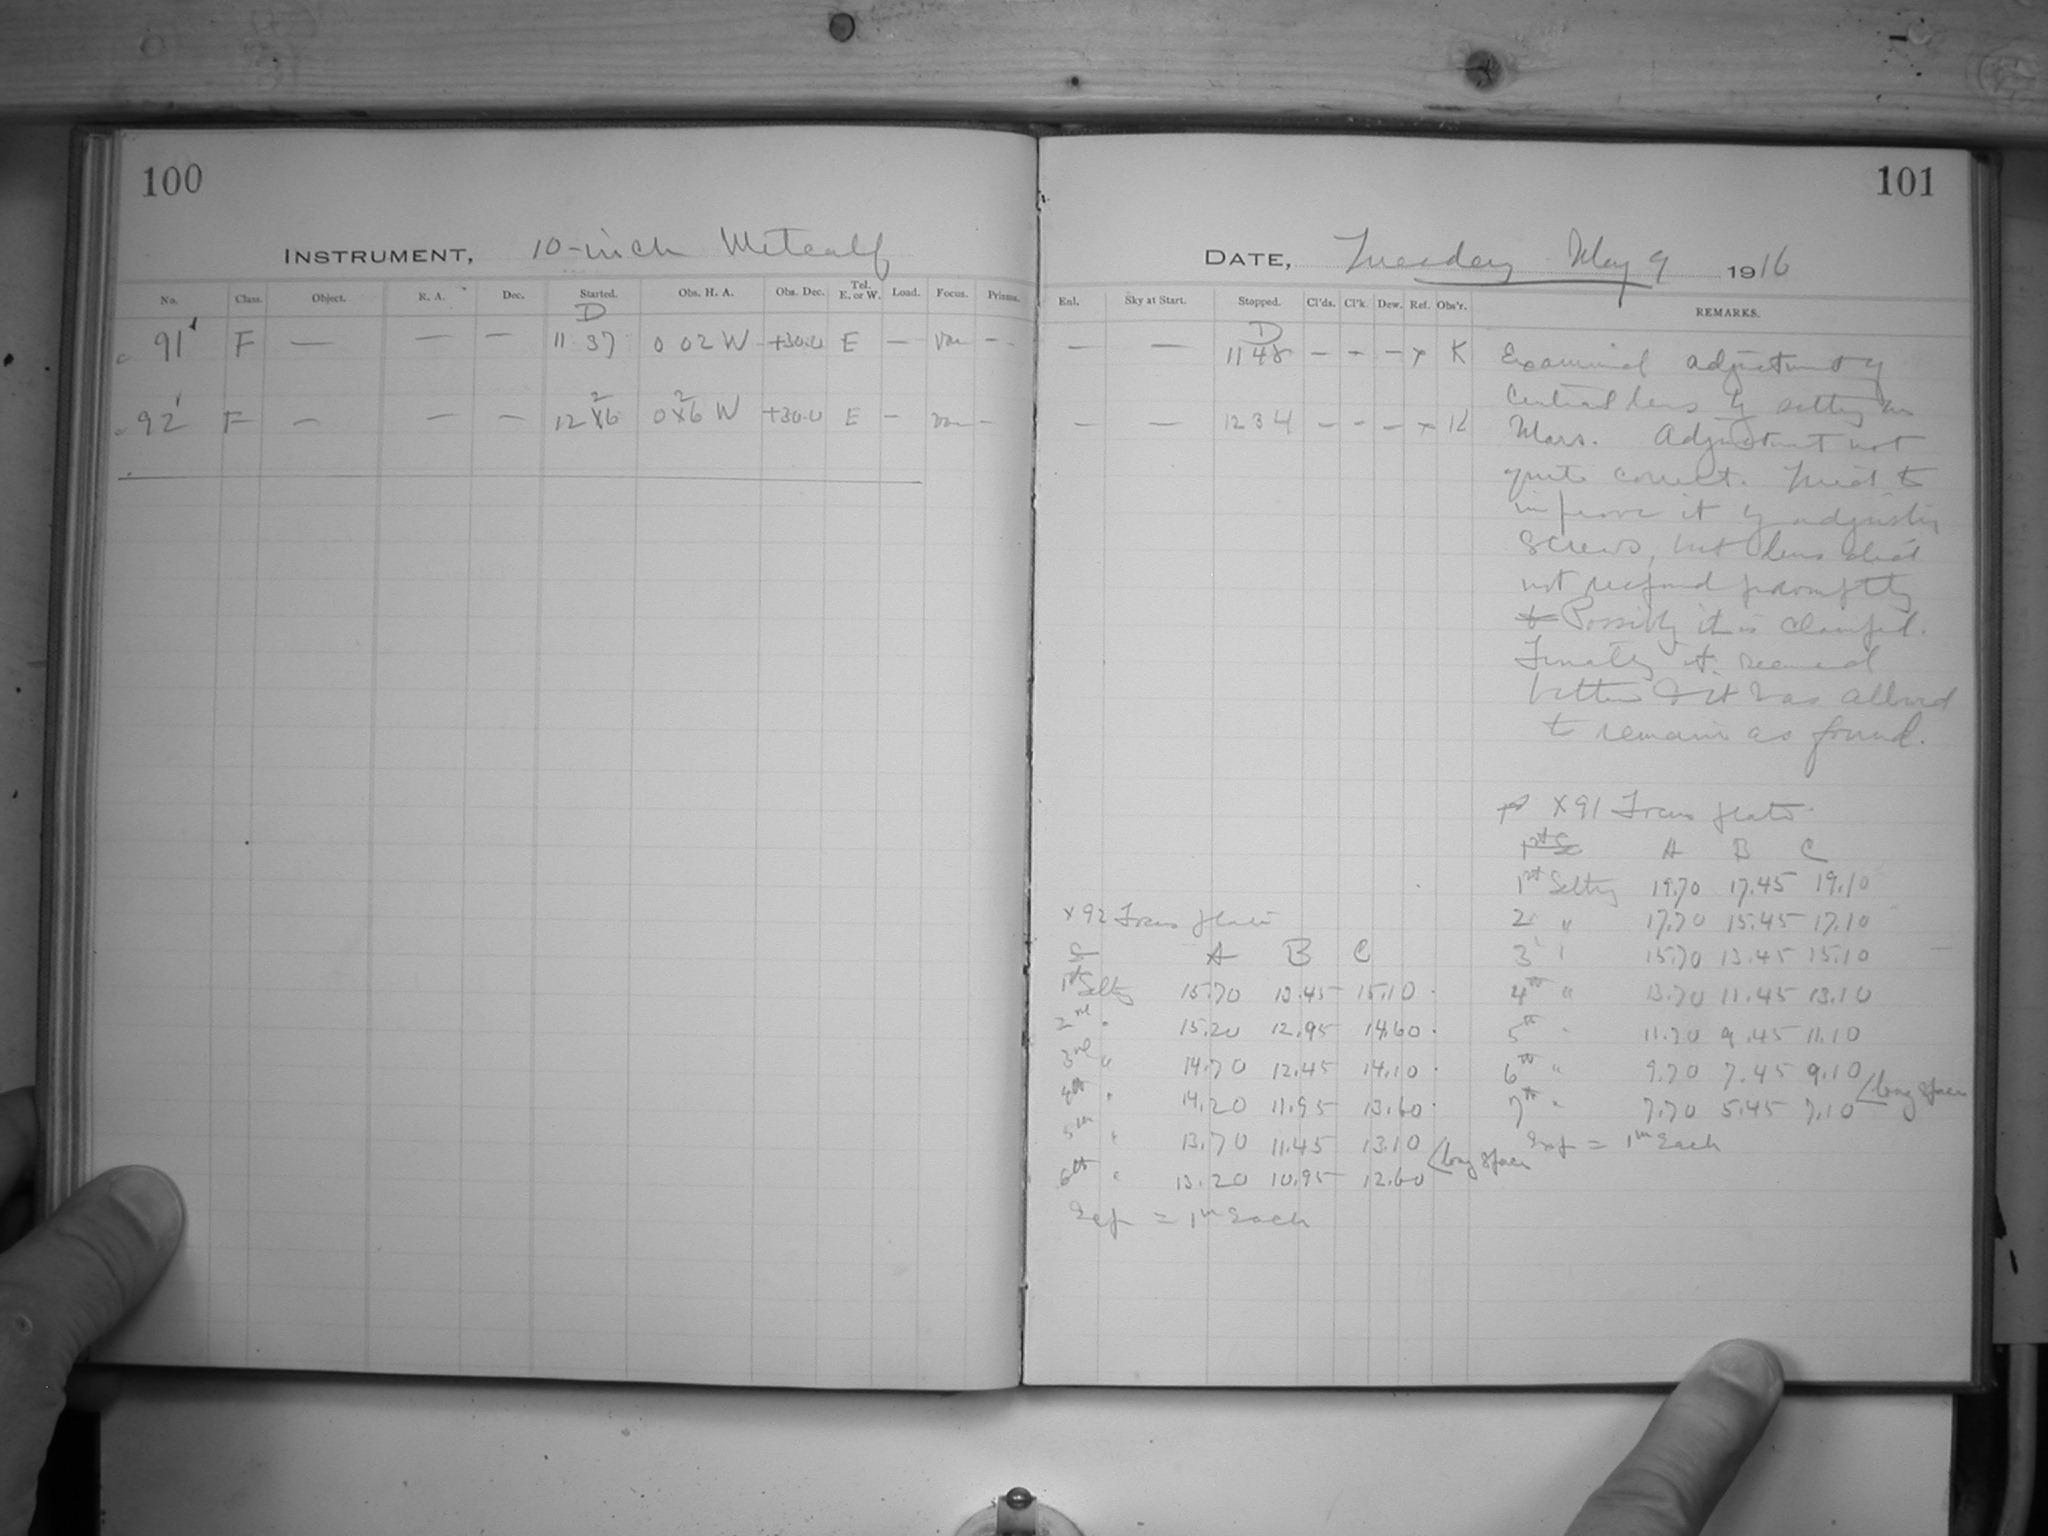 100
INSTRUMENT, 10-inch Metcalf
No. Class. Object. R. A. Dec. Started. Obs. H. A. Obs. Dec. Tel. E. or W. Load. Focus. Prisms.
D
91 F — — — 11 37 0 02 W +30.0 E — Var — -
92 F — — — 12 26 0 26 W +30.0 E — Var —
101
DATE, Tuesday May 9 1916
Enl. Sky at Start. Stopped. Cl'ds. Cl'k. Dew. Ref. Obs'r. REMARKS.
D
— — 11 48 — - — x K
— — 12 34 — - — x K
Examined adjustment of
Central lens by setting on
Mars. Adjustment not
quite correct. Tried to
improve it by adjusting
screws, but lens did
not respond promptly
Possibly it is clamped.
Finally it seemed
better & it was allowed
to remain as found.
X91 Focus plate
1st S
A B C
1st Setting 19.70 17.45 19.10
2 " 17.70 15.45 17.10
3 " 15.70 13.45 15.10
4th " 13.70 11.45 13.10
5th " 11.70 9.45 11.10
6th " 9.70 7.45 9.10
7th " 7.70 5.45 7.10
long space
Exp = 1m Each
X92 Focus plate
S A B C
1st Setting 15.70 13.45 15.10
2nd " 15.20 12.95 14.60
3rd " 14.70 12.45 14.10
4th " 14.20 11.95 13.60
5th " 13.70 11.45 13.10
6th " 13.20 10.95 12.60
long space
Exp = 1m Each